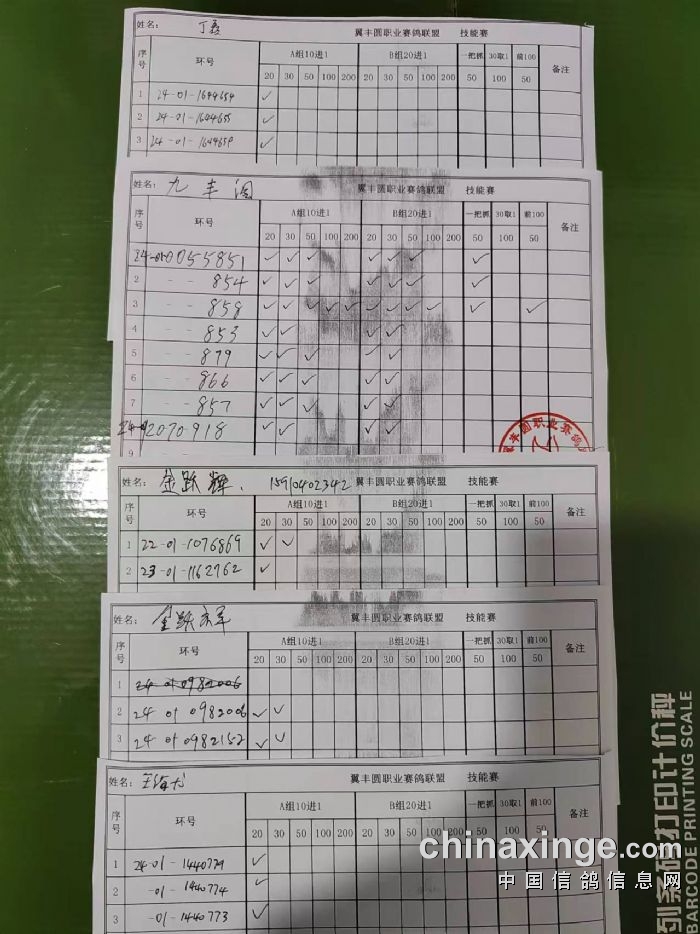 姓名： 丁磊 翼丰圆职业赛鸽联盟 技能赛
序号 环号 A组10进1 B组20进1 一把抓 30取1 前100 备注
20 30 50 100 200 20 30 50 100 200 50 100 50
1 24-01-1644654 ✓
2 24-01-1644655 ✓
3 24-01-1644659 ✓
姓名： 九丰阁 翼丰圆职业赛鸽联盟 技能赛
序号 环号 A组10进1 B组20进1 一把抓 30取1 前100 备注
20 30 50 100 200 20 30 50 100 200 50 100 50
24-01-0055851 ✓ ✓ ✓ ✓ ✓ ✓ ✓
2 - - 854 ✓ ✓ ✓ ✓ ✓ ✓ ✓
3 - - 858 ✓ ✓ ✓ ✓ ✓ ✓ ✓ ✓ ✓ ✓ ✓
4 - - 853 ✓ ✓ ✓ ✓
5 - - 879 ✓ ✓ ✓ ✓ ✓
6 - - 866 ✓ ✓ ✓ ✓ ✓
7 - - 857 ✓ ✓ ✓ ✓ ✓
24-01 2070918 ✓ ✓ ✓ ✓
9
丰圆职业赛鸽
姓名： 金跃辉. 15910402342 翼丰圆职业赛鸽联盟 技能赛
序号 环号 A组10进1 B组20进1 一把抓 30取1 前100 备注
20 30 50 100 200 20 30 50 100 200 50 100 50
1 22-01-1076869 ✓ ✓
2 23-01-1162762 ✓
姓名： 金跃军 翼丰圆职业赛鸽联盟 技能赛
序号 环号 A组10进1 B组20进1 一把抓 30取1 前100 备注
20 30 50 100 200 20 30 50 100 200 50 100 50
1 24 01 0982006
2 24 01 0982006 ✓ ✓
3 24 01 0982152 ✓ ✓
姓名： 王海 翼丰圆职业赛鸽联盟 技能赛
序号 环号 A组10进1 B组20进1 一把抓 30取1 前100 备注
20 30 50 100 200 20 30 50 100 200 50 100 50
1 24-01-1440779 ✓
2 -01-1440774 ✓
3 -01-1440773 ✓
列条码打印计价秤
BARCODE-PRINTING SCALE
chinaxinge.com
中国信鸽信息网